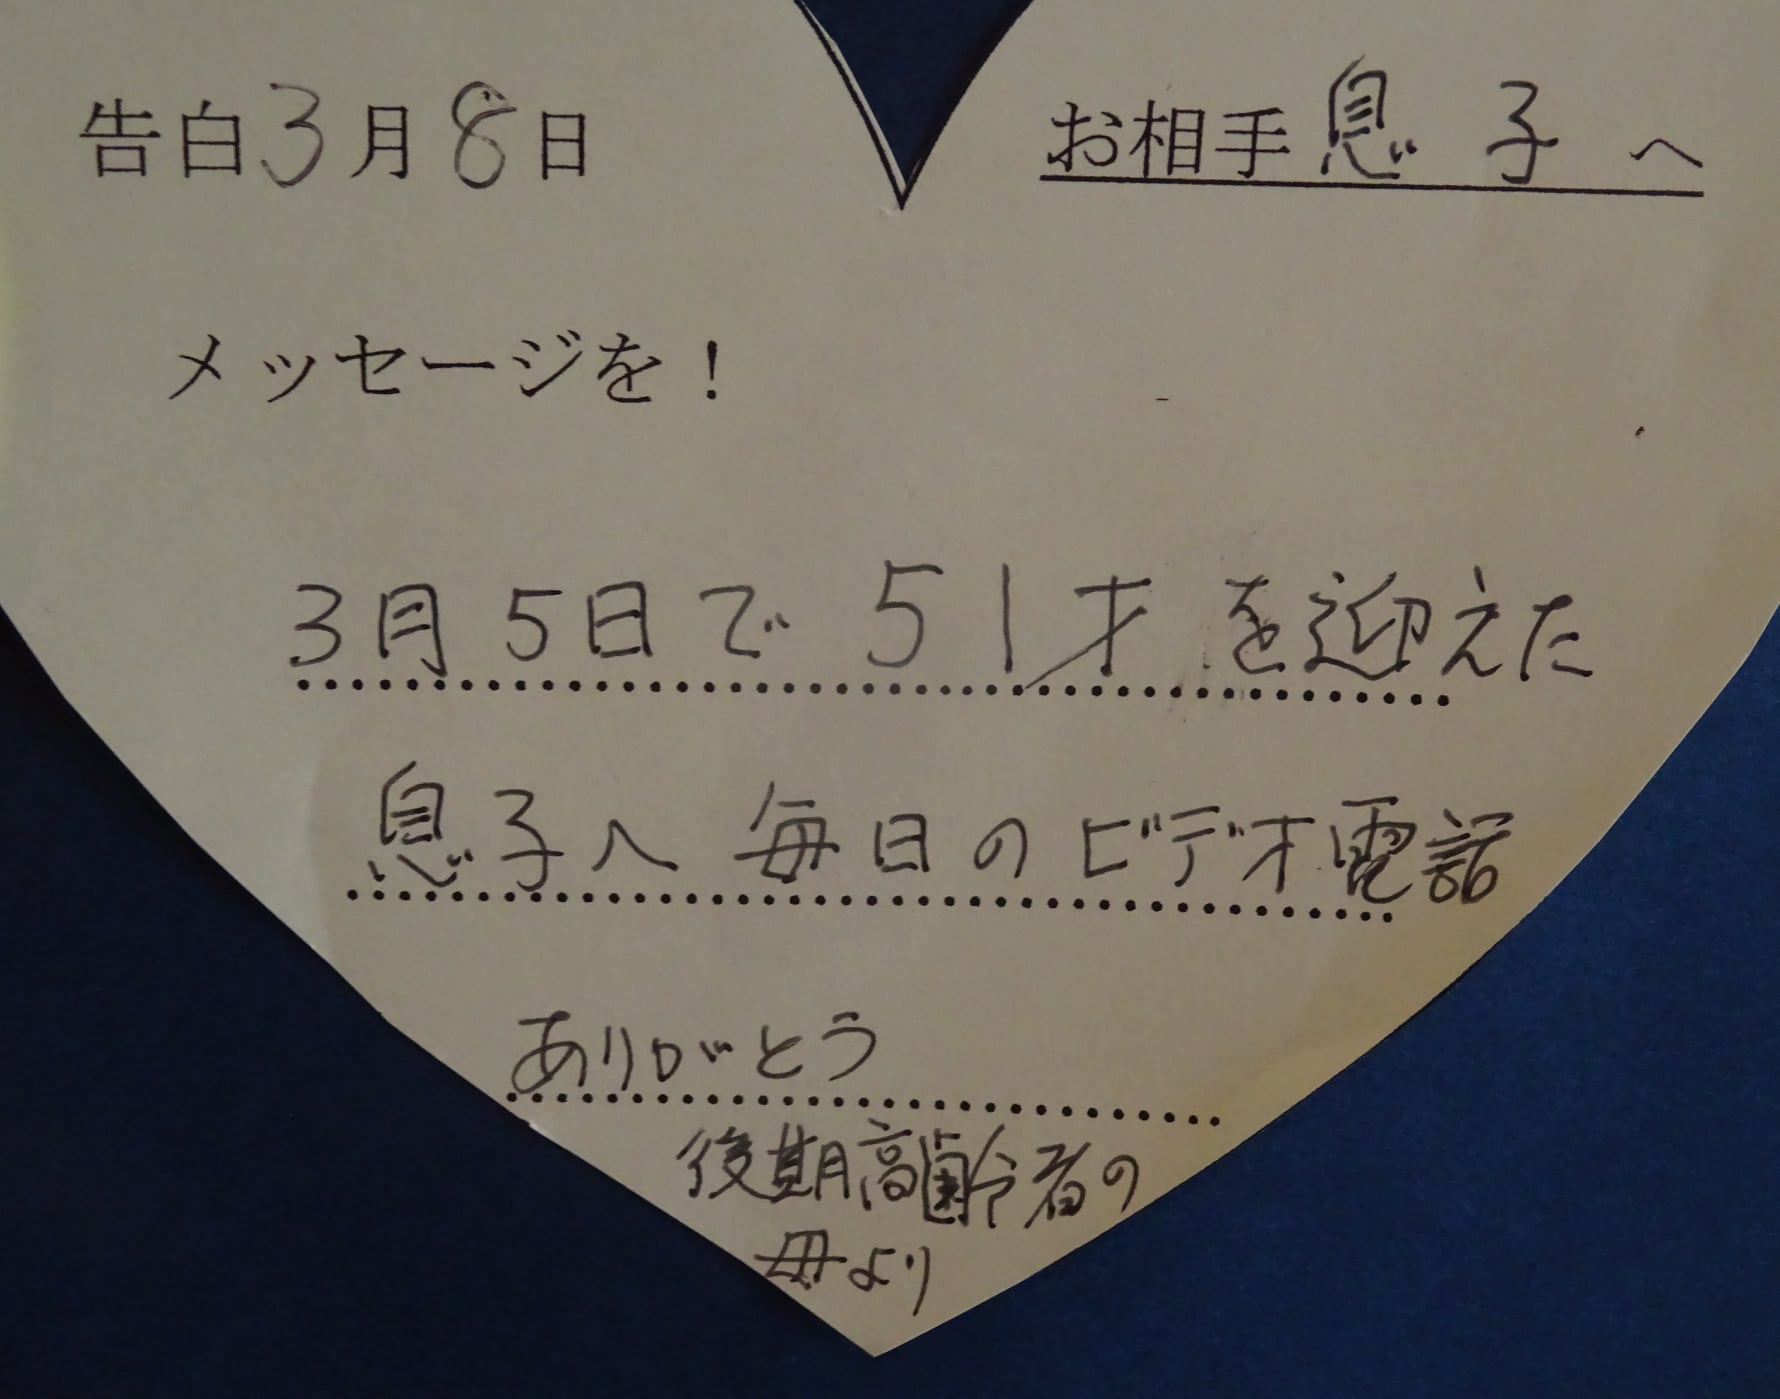 告白3月8日
お相手息子へ
メッセージを！
3月5日で51才を迎えた
息子へ毎日のビデオ電話
ありがとう
後期高齢者の
母より